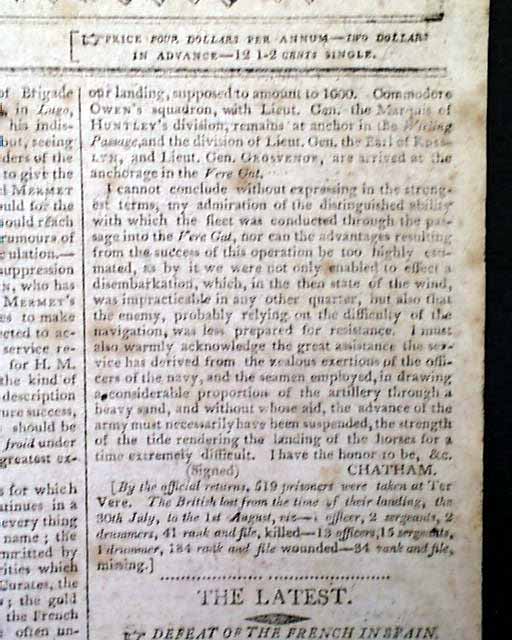 PRICE FOUR DOLLARS PER ANNUM—TWO DOLLARS
IN ADVANCE—12 1-2 CENTS SINGLE.
of Brigade
in Lugo,
his indis-
but, seeing
ders of the
to give the
MERMET
uld for the
ould reach
rumours of
culation,—
suppression
who has
MERMET'S
es to make
ected to ac-
service re-
for H. M.
the kind of
description
ture success,
should be
froid under
greatest ex-
s for which
tinues in a
every thing
name; the
mritted by
rities which
Curates, the
s; the gold
the French
often un-
our landing, supposed to amount to 1600. Commodore
OWEN's squadron, with Lieut. Gen. the Marquis of
HUNTLEY's division, remains at anchor in the Wieling
Passage, and the division of Lieut. Gen. the Earl of ROSS-
LYN, and Lieut. Gen. GROSVENOR, are arrived at the
anchorage in the Vere Gat.
I cannot conclude without expressing in the strong-
est terms, my admiration of the distinguished ability
with which the fleet was conducted through the pas-
sage into the Vere Gat, nor can the advantages resulting
from the success of this operation be too highly esti-
mated, as by it we were not only enabled to effect a
disembarkation, which, in the then state of the wind,
was impracticable in any other quarter, but also that
the enemy, probably relying on the difficulty of the
navigation, was less prepared for resistance. I must
also warmly acknowledge the great assistance the ser-
vice has derived from the zealous exertions of the offi-
cers of the navy, and the seamen employed, in drawing
a considerable proportion of the artillery through a
heavy sand, and without whose aid, the advance of the
army must necessarily have been suspended, the strength
of the tide rendering the landing of the horses for a
time extremely difficult. I have the honor to be, &c.
(Signed) CHATHAM.
[By the official returns, 519 prisoners were taken at Ter
Vere. The British lost from the time of their landing, the
30th July, to the 1st August, viz— officer, 2 sergeants, 2
drummers, 41 rank and file, killed—13 officers, 15 sergeants,
1 drummer, 184 rank and file wounded—34 rank and file,
mining.]
THE LATEST.
DEFEAT OF THE FRENCH IN SPAIN.